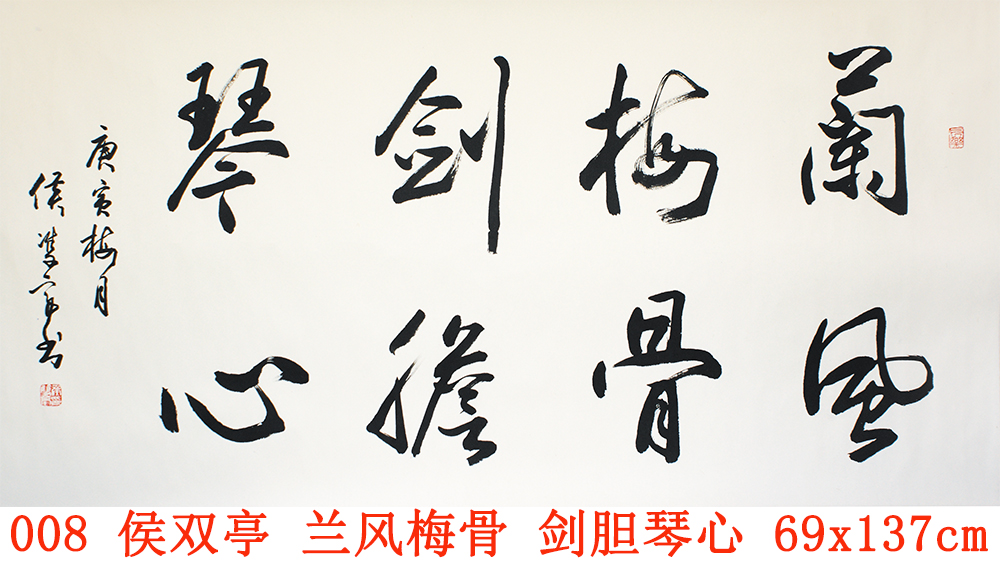 蘭風
梅骨
剑膽
琴心
庚寅梅月
侯双亭书
008 侯双亭 兰风梅骨 剑胆琴心 69x137cm